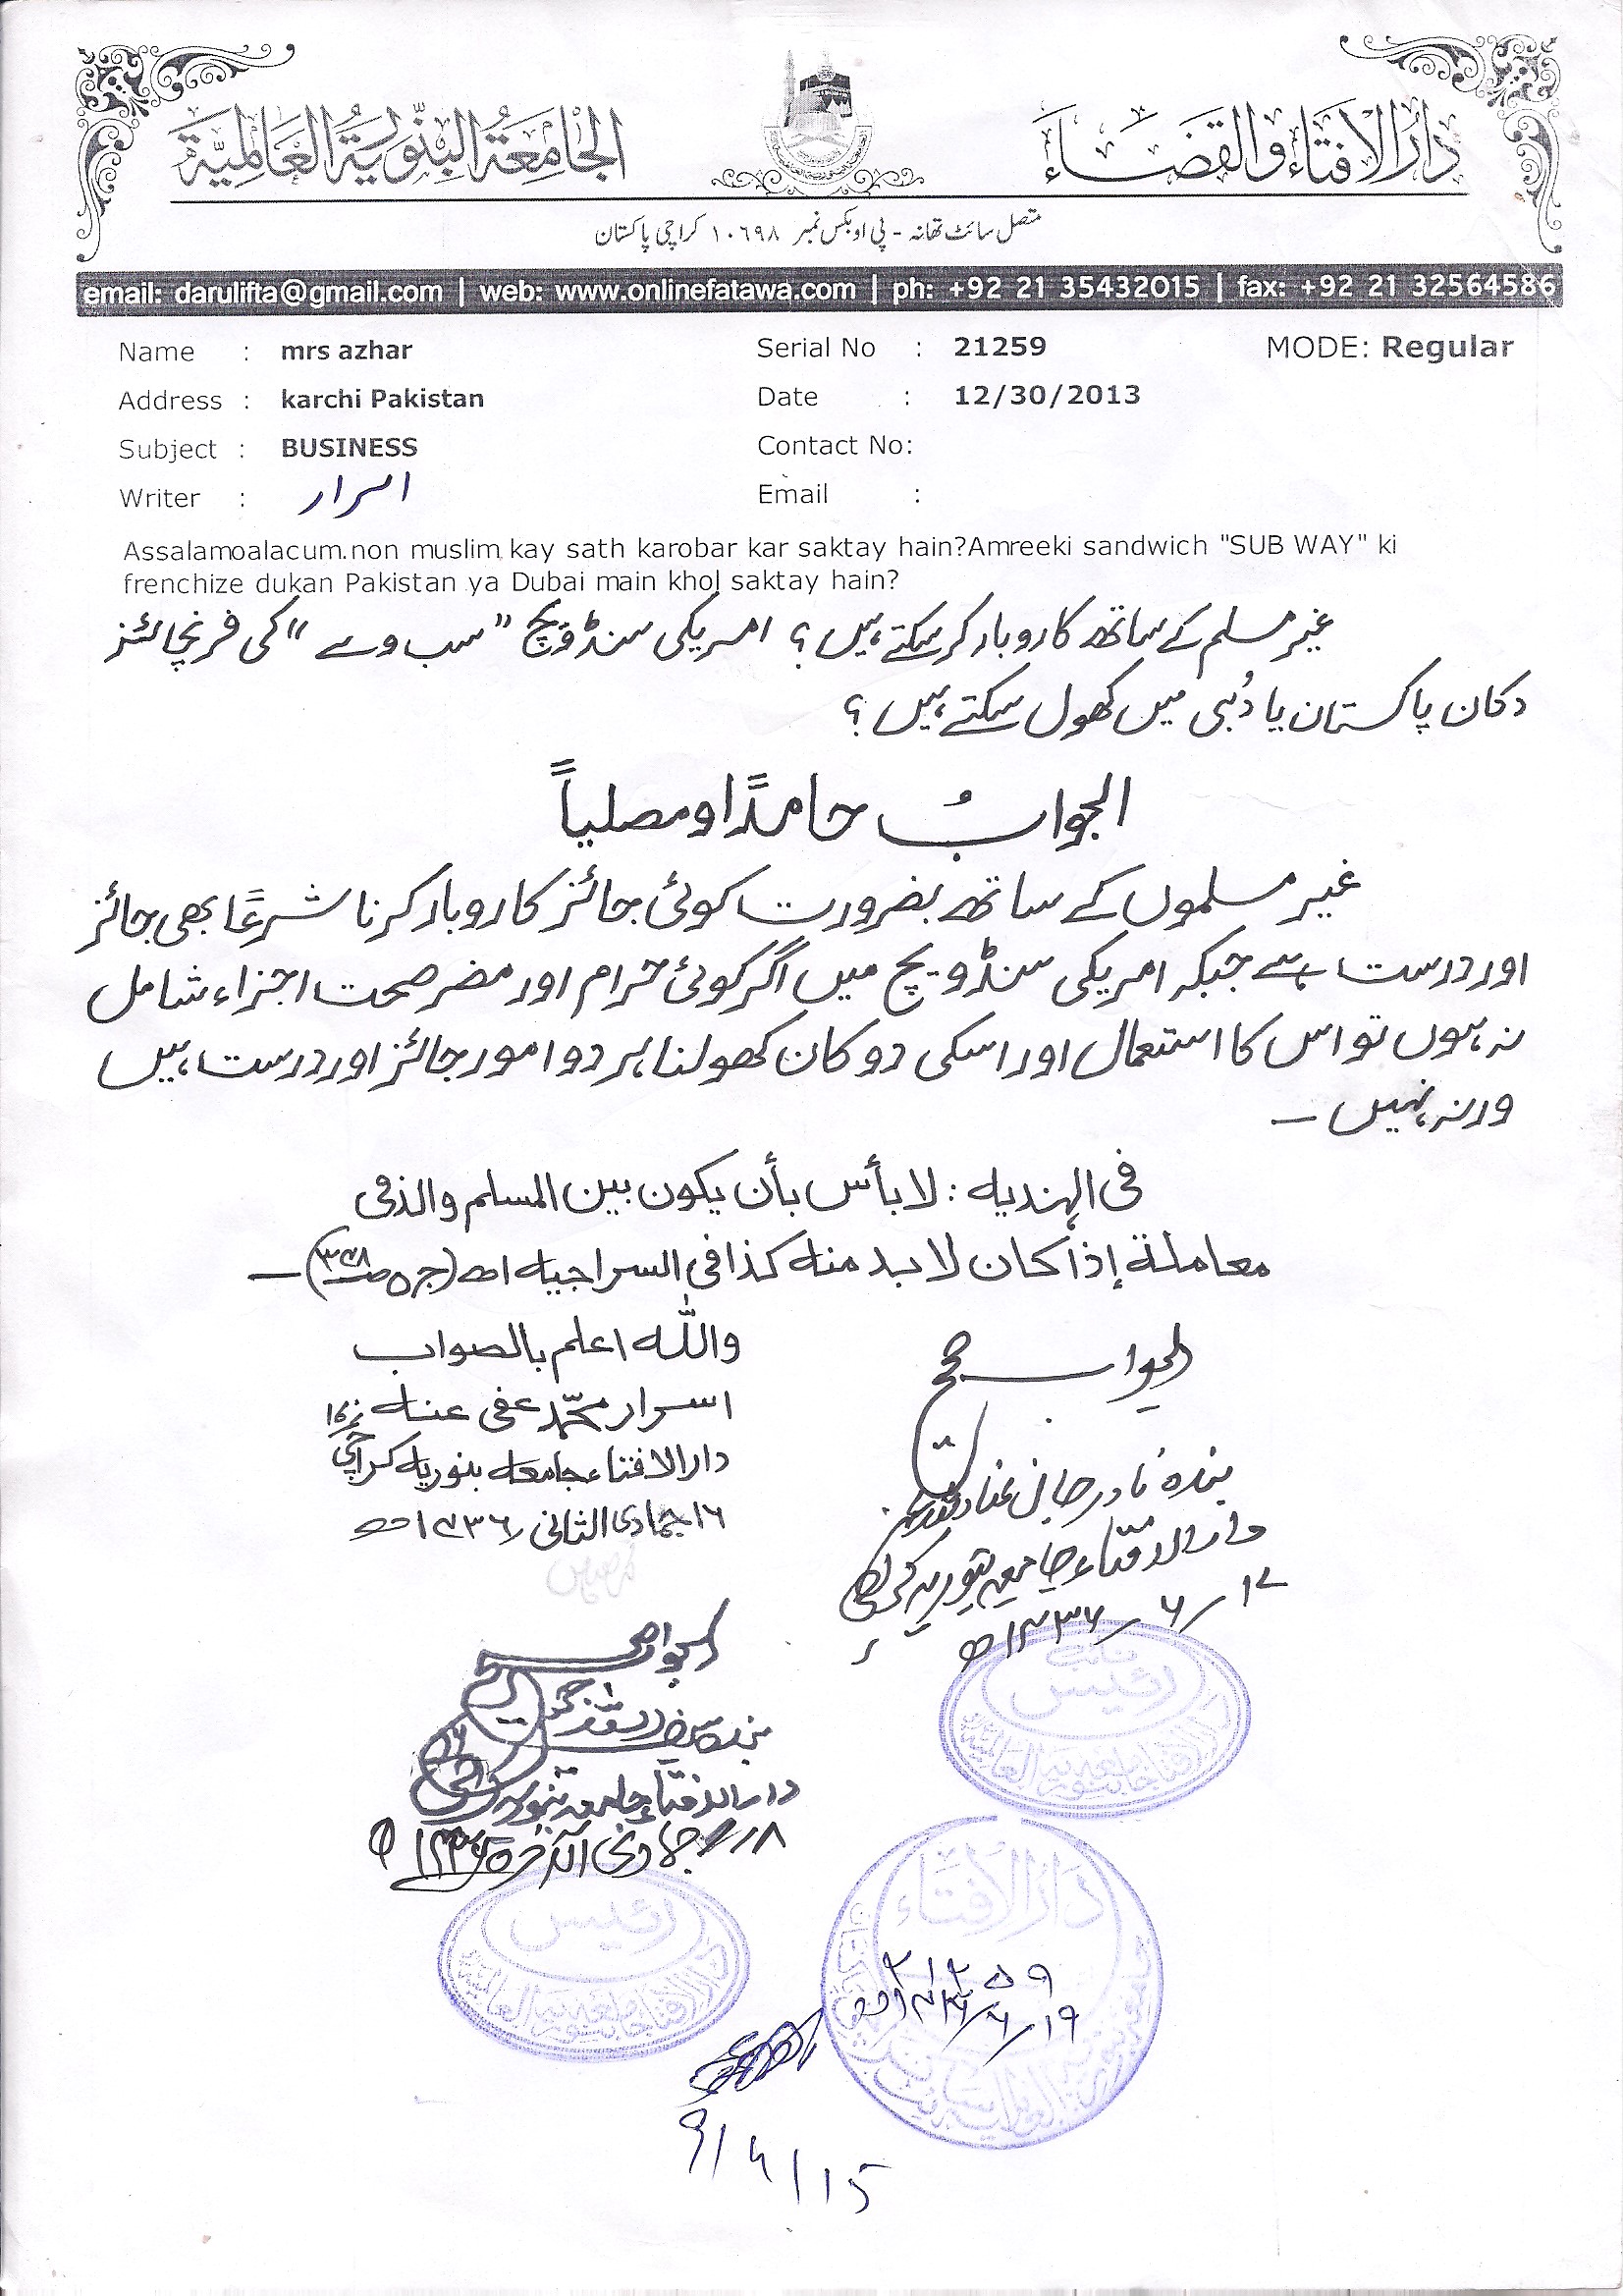 دار الافتاء والقضاء
الجامعة البنورية العالمية
متصل سائٹ تھانہ - پی او بکس نمبر ۱۰۶۹۸ کراچی پاکستان
email: darulifta@gmail.com | web: www.onlinefatawa.com | ph: +92 21 35432015 | fax: +92 21 32564586
Name : mrs azhar Serial No : 21259 MODE: Regular
Address : karchi Pakistan Date : 12/30/2013
Subject : BUSINESS Contact No:
Writer : اسرار Email :
Assalamoalacum.non muslim kay sath karobar kar saktay hain?Amreeki sandwich "SUB WAY" ki
frenchize dukan Pakistan ya Dubai main khol saktay hain?
غیر مسلم کے ساتھ کاروبار کر سکتے ہیں؟ امریکی سنڈویچ "سب وے" کی فرنچائنز
دکان پاکستان یا دُبئی میں کھول سکتے ہیں؟
الجوابُ حامدًا ومصلیاً
غیر مسلموں کے ساتھ بضرورت کوئی جائز کاروبار کرنا شرعًا بھی جائز
اور درست ہے جبکہ امریکی سنڈویچ میں اگر کوئی حرام اور مضر صحت اجزاء شامل
نہ ہوں تو اس کا استعمال اور اسکی دوکان کھولنا ہر دو امور جائز اور درست ہیں
ورنہ نہیں ۔
فی الہندیہ : لا بأس بأن یکون بین المسلم والذمی
معاملة إذا کان لا بد منه کذا فی السراجیه اھ (ج ۵ ص ۳۴۸) ۔
واللہ اعلم بالصواب
اسرار محمّد عفی عنه
دار الافتاء جامعه بنوریه کراچی
۱۶ جمادی الثانی ۱۴۳۶ھ
الجواب صح
بندہ نادر جان
دار الافتاء جامعہ بنوریہ کراچی
۱۷/۶/۱۴۳۶ھ
نائب
رئیس
دار الافتاء جامعہ بنوریہ العالمیہ
الجواب صحیح
بندہ
دار الافتاء جامعہ بنوریہ
۱۸ جمادی الآخرہ ۱۴۳۶ھ
رئیس
دار الافتاء جامعہ بنوریہ العالمیہ
دار الافتاء
۲۱۲۵۹
۱۹/۶/۱۴۳۶ھ
9/4/15